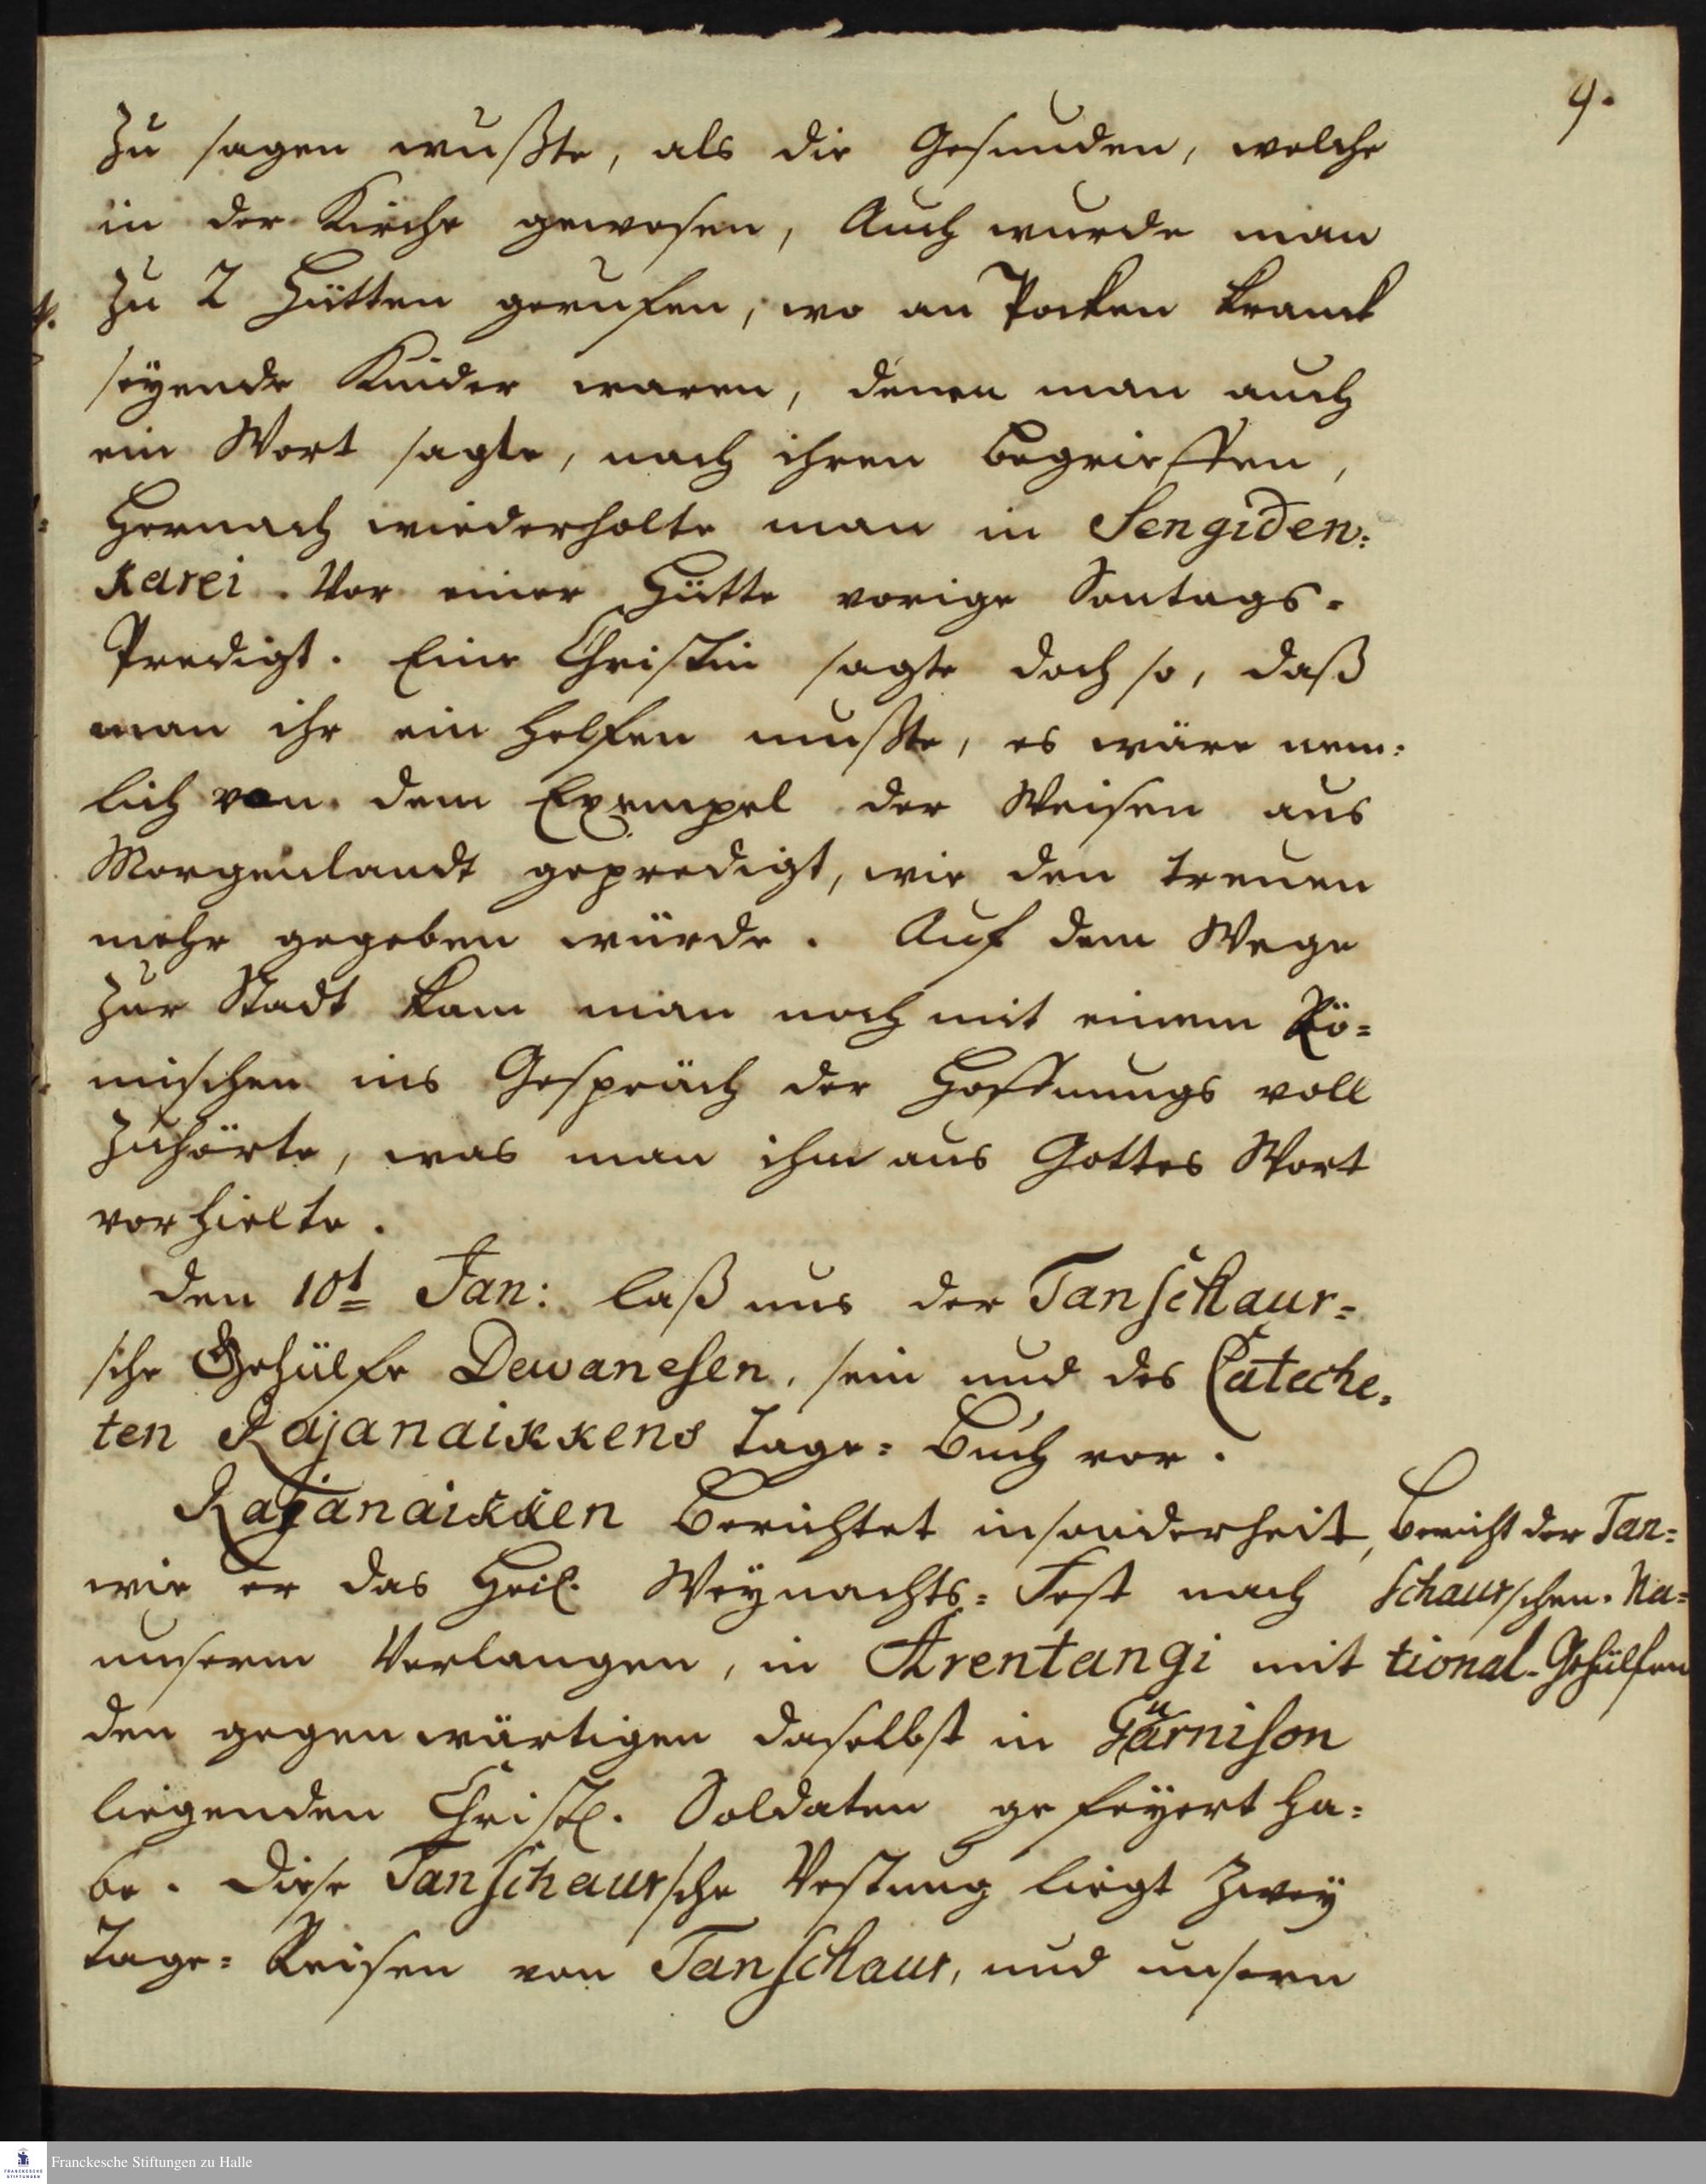 9.
zu sagen wußte, als die Gesunden, welche
in der Kirche gewesen, Auch wurde man
zu 2 Hütten gerufen, wo an Pocken kranck
seyende Kinder waren, denen man auch
ein Wort sagte, nach ihren begrieffen,
Hernach wiederholte man in Sengiden:
karei. Vor einer Hütte vorige Sontags-
Predigt. Eine Christin sagte doch so, daß
man ihr ein helffen mußte, es wäre nem:
lich von dem Exempel der Weisen aus
Morgenlandt gepredigt, wie den treuen
mehr gegeben würde. Auf dem Wege
zur Stadt kam man noch mit einem Rö=
mischen ins Gespräch der Hoffnungs voll
zuhörte, was man ihm aus Gottes Wort
vorhielte.
den 10t Jan: laß uns der Tanschaur=
sche Gehülfe Dewanesen, sein und des Cateche=
ten Rajanaikkens Tage= Buch vor.
Rajanaikken Berichtet insonderheit,
wie er das Heil. Weynachts= Fest nach
unserm Verlangen, in Arentangi mit
den gegenwärtigen daselbst in Garnison
liegenden Christl. Soldaten gefeyert ha=
be. Diese Tanschaursche Vestung liegt Zwey
Tage= Reisen von Tanschaur, und unsern
Bericht der Tan=
schaurschen Na=
tional-Gehülfen
Franckesche Stiftungen zu Halle